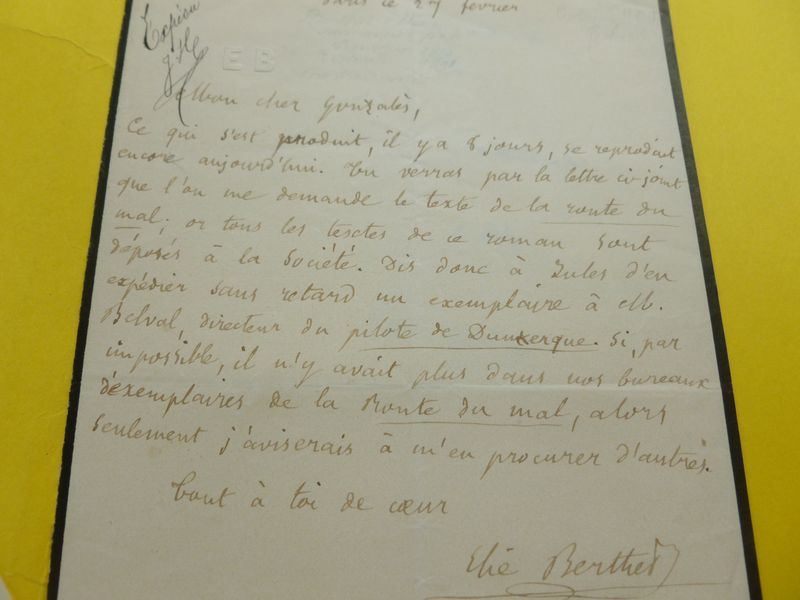 Paris ce 27 février
Expédié
EB
Mon cher Gonzalès,
Ce qui s'est produit, il y a 8 jours, se reproduit
encore aujourd'hui. Tu verras par la lettre ci-joint
que l'on me demande le texte de la route du
mal; or tous les textes de ce roman sont
déposés à la Société. Dis donc à Jules d'en
expédier sans retard un exemplaire à M.
Belval, directeur du pilote de Dunkerque. Si, par
impossible, il n'y avait plus dans nos bureaux
d'exemplaires de la Route du mal, alors
seulement j'aviserais à m'en procurer d'autres.
Tout à toi de cœur
Elie Berthet